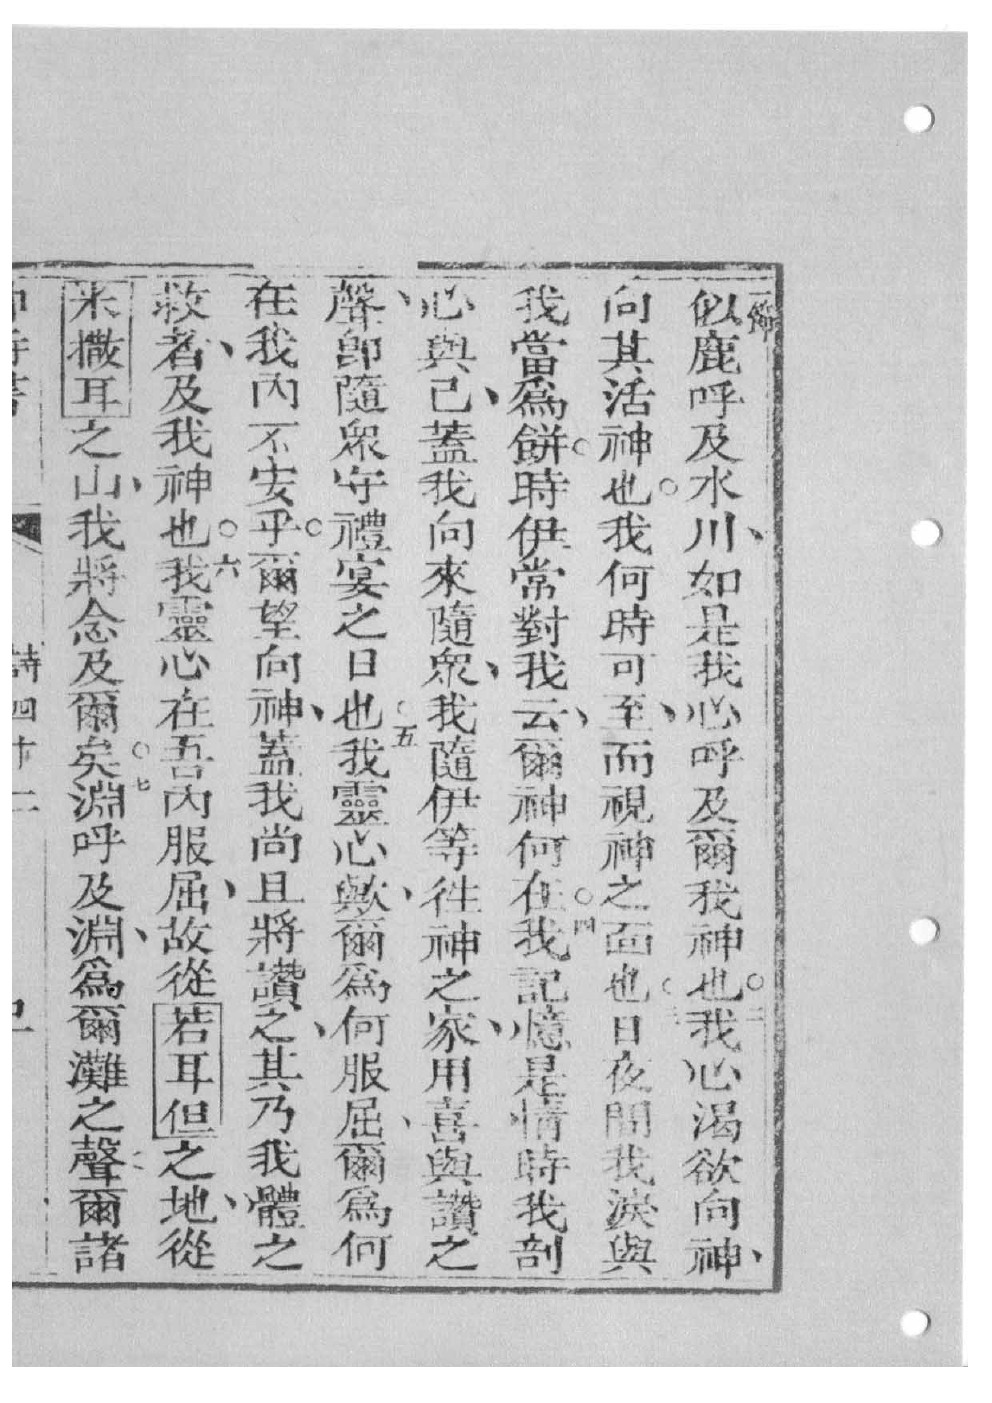 一節似鹿呼及水川、如是我心呼及爾我神也○二我心渴欲向神、
向其活神也○我何時可至、而視神之面也○三日夜間我淚與
我當爲餅○時伊常對我云、爾神何在○四我記憶是情時我剖
心與己、蓋我向來隨衆、我隨伊等往神之家、用喜與讚之
聲、卽隨衆守禮宴之日也○五我靈心歟、爾爲何服屈、爾爲何
在我內不安乎○爾望向神、蓋我尚且將讚之、其乃我體之
救者、及我神也○六我靈心在吾內服屈、故從若耳但之地、從
米撒耳之山、我將念及爾矣○七淵呼及淵、爲爾灘之聲、爾諸
詩四十二